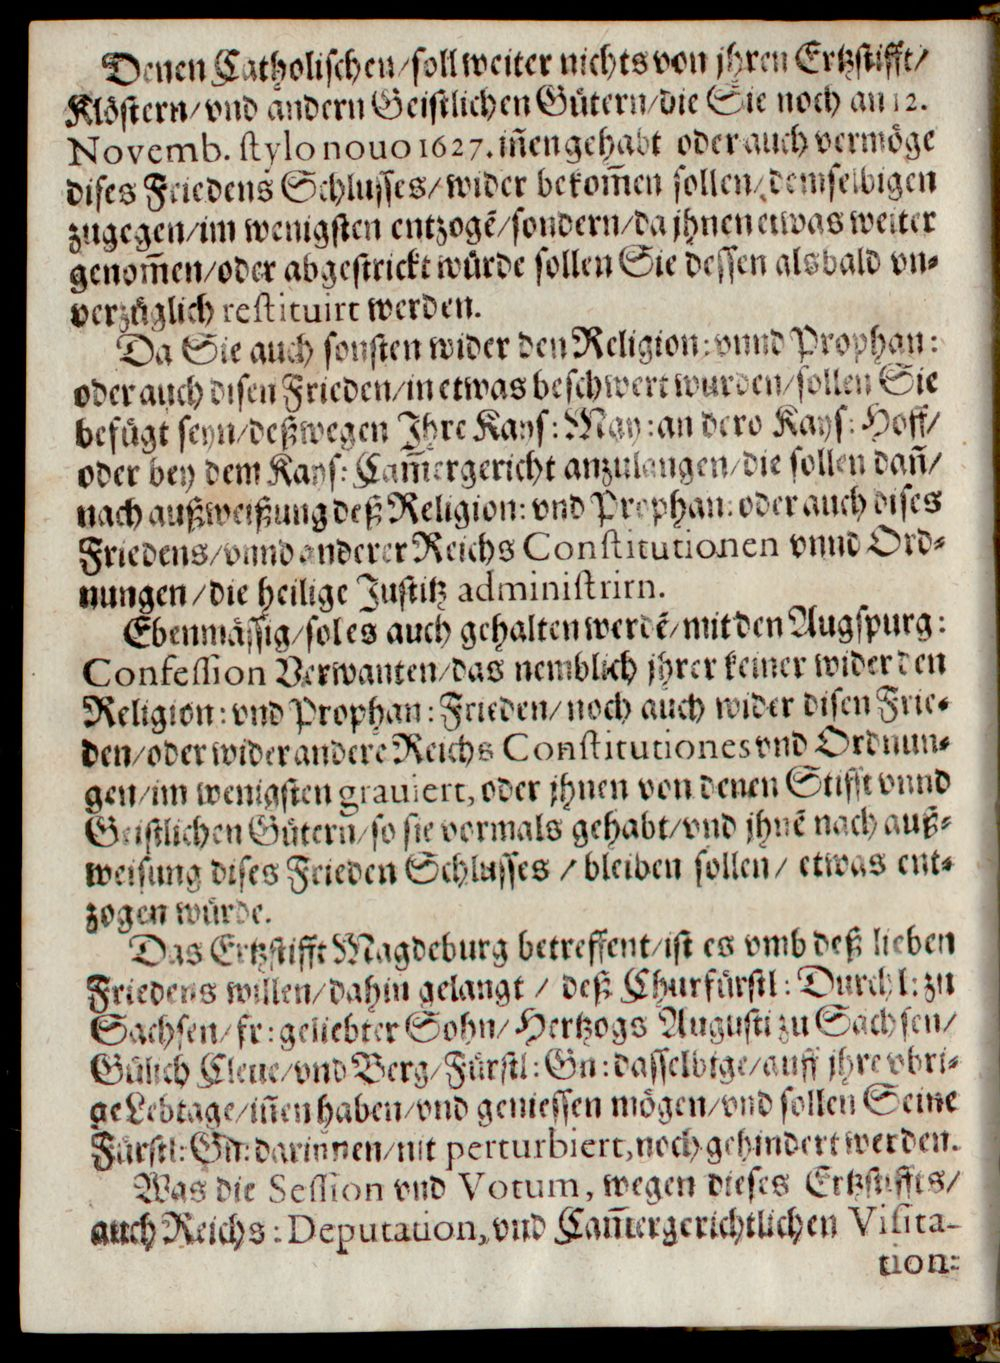 Denen Catholischen/soll weiter nichts von jhren Ertzstifft/
Klöstern/vnd andern Geistlichen Gütern/die Sie noch an 12.
Novemb. stylo nouo 1627. iñengehabt oder auch vermöge
dises Friedens Schlusses/wider bekom̃en sollen/demselbigen
zugegen/im wenigsten entzogẽ/sondern/da jhnen etwas weiter
genom̃en/oder abgestrickt würde sollen Sie dessen alsbald vn-
verzüglich restituirt werden.
Da Sie auch sonsten wider den Religion: vnnd Prophan:
oder auch disen Frieden/in etwas beschwert wurden/sollen Sie
befügt seyn/deßwegen Ihre Kays: May: an dero Kays: Hoff/
oder bey dem Kays: Cam̃ergericht anzulangen/die sollen dañ/
nach außweißung deß Religion: vnd Prophan: oder auch dises
Friedens/vnnd anderer Reichs Constitutionen vnnd Ord-
nungen/die heilige Justitz administrirn.
Ebenmässig/sol es auch gehalten werdẽ/mit den Augspurg:
Confession Verwanten/das nemblich jhrer keiner wider den
Religion: vnd Prophan: Frieden/noch auch wider disen Frie-
den/oder wider andere Reichs Constitutiones vnd Ordnun-
gen/im wenigsten grauiert, oder jhnen von denen Stifft vnnd
Geistlichen Gütern/so sie vormals gehabt/vnd jhnẽ nach auß-
weisung dises Frieden Schlusses / bleiben sollen/ etwas ent-
zogen würde.
Das Ertzstifft Magdeburg betreffent/ist es vmb deß lieben
Friedens willen/dahin gelangt / deß Churfürstl: Durchl: zu
Sachsen/fr: geliebter Sohn/Hertzogs Augusti zu Sachsen/
Gülich Cleue/vnd Berg/Fürstl: Gn: dasselbige/auff jhre vbri-
ge Lebtage/iñen haben/vnd geniessen mögen/vnd sollen Seine
Fürstl: Gn: darinnen/nit perturbiert, noch gehindert werden.
Was die Session vnd Votum, wegen dieses Ertzstiffts/
auch Reichs: Deputation, vnd Cam̃ergerichtlichen Visita-
tion: